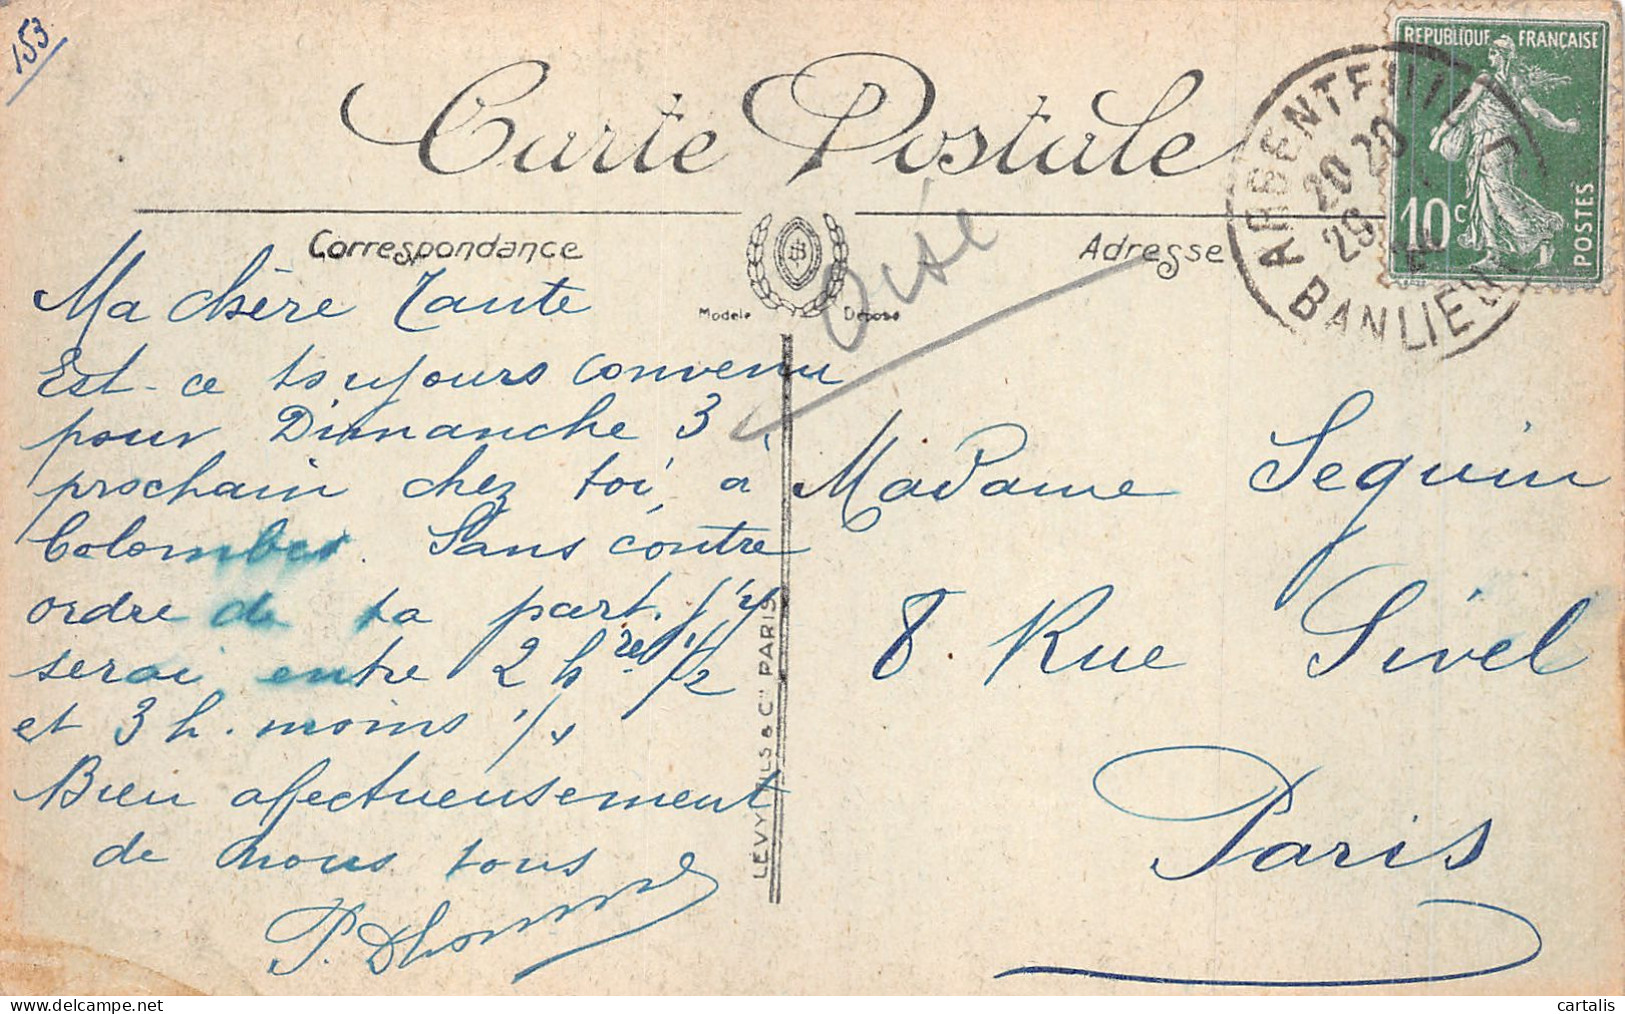 153
Carte Postale
REPUBLIQUE FRANÇAISE
10c
POSTES
ARGENTEUIL
20 20
29
BANLIEUE
Correspondance
Adresse
Modèle Déposé
Oise
Ma chère Tante
Est-ce toujours convenu
pour Dimanche 3
prochain chez toi à
Colombes. Sans contre
ordre de ta part. j'y
serai entre 2 hres 1/2
et 3 h. moins 1/4
Bien affectueusement
de nous tous
P. Dhomme
LEVY FILS & Cie PARIS
Madame Sequin
8. Rue Sivel
Paris
cartalis